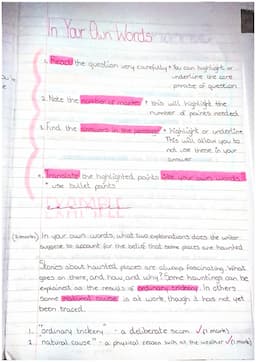 In Your Own Words
1. Read the question very carefully * You can highlight or
underline the core
phrase of question
2. Note the number of marks * this will highlight the
number of points needed
3. Find the answers in the passage * Highlight or underline
This will allow you to
not use these in your
answer
4. Translate the highlighted points use your own words
* use bullet points
EXAMPLE
(2 marks) In your own words, what two explanations does the writer
suggest to account for the belief that some places are haunted
Stories about haunted places are always fascinating. What
goes on there, and how, and why? Some hauntings can be
explained as the results of ordinary trickery. In others
some natural cause is at work, though it has not yet
been traced.
1. "Ordinary trickery" - a deliberate scam ✓(1 mark)
2. natural cause" - a physical reason such as the weather ✓(1 mark)